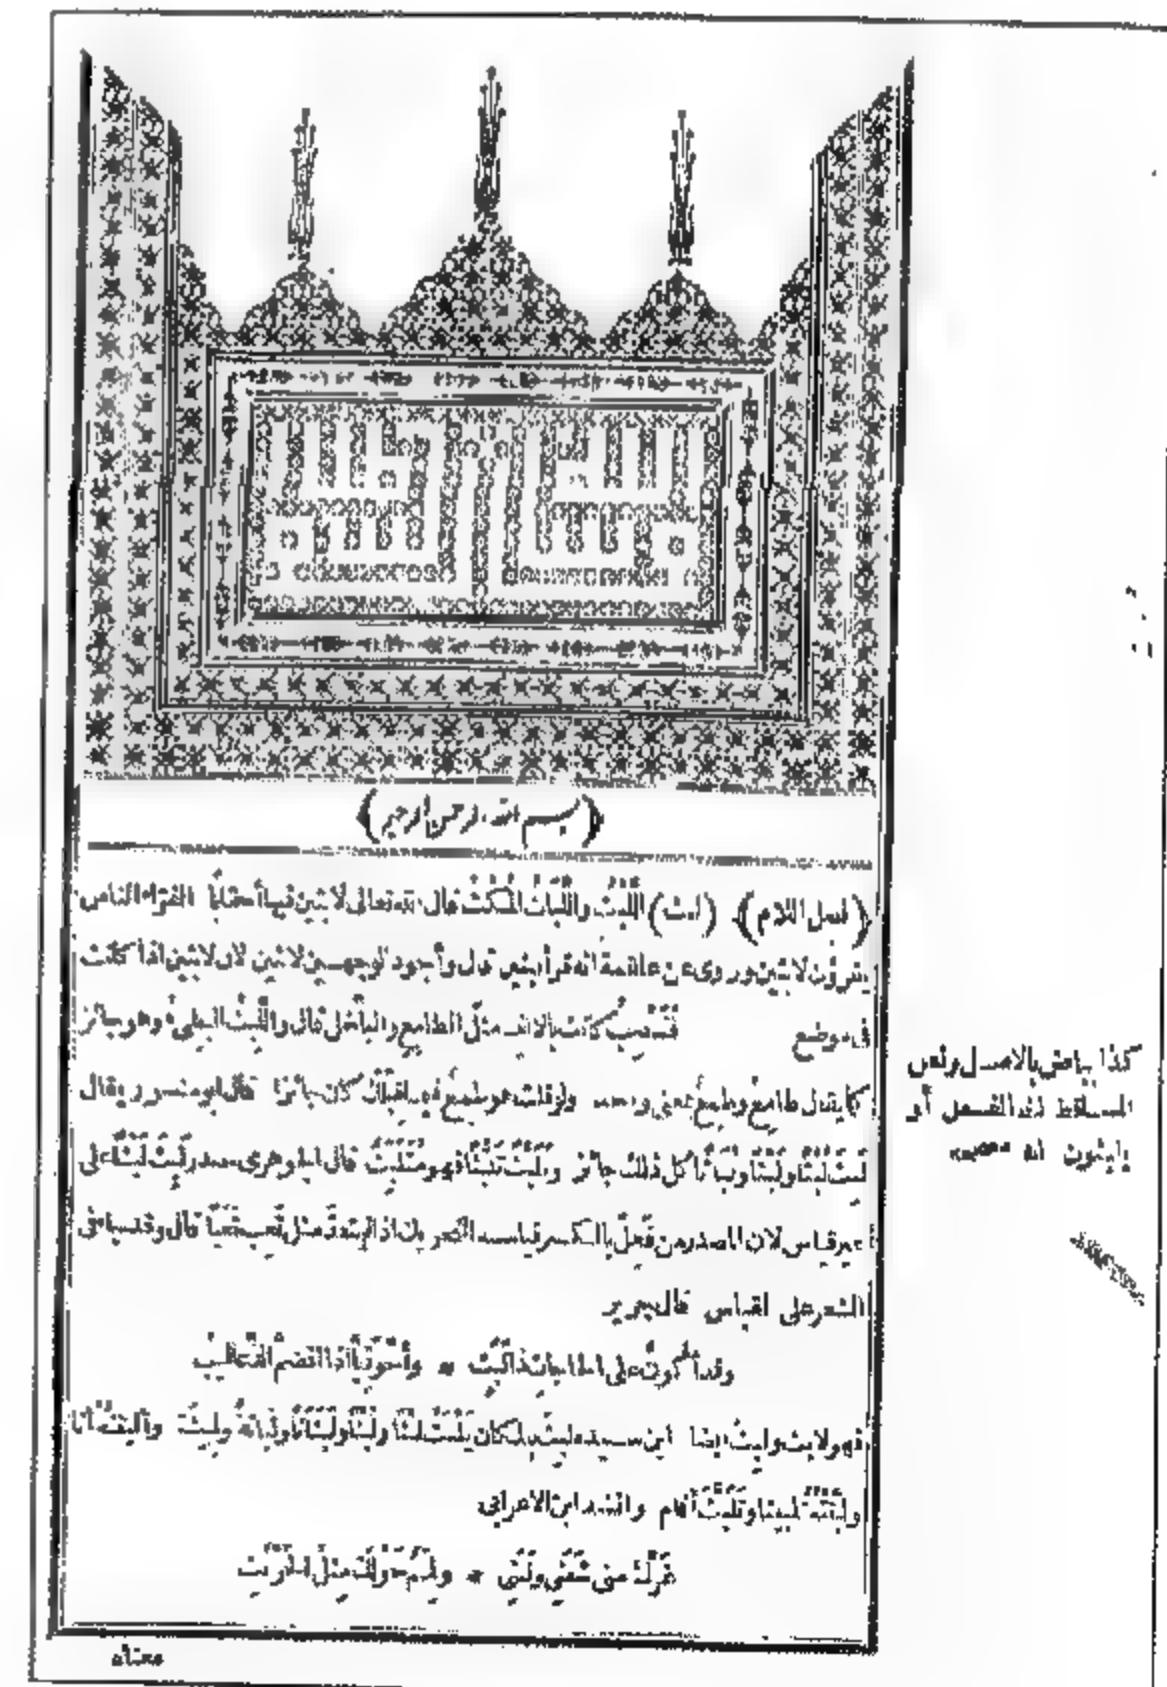 ﴿بسم الله الرحمن الرحيم﴾
﴿فصل اللام﴾ (لبث) اللَّبْثُ واللَّبَاثُ المُكْثُ قال الله تعالى لابثين فيها أحقابا الفراء الناس
يقرؤن لابثين وروى عن علقمة أنه قرأ لبثين قال وأجود الوجهين لابثين لان لابثين اذا كانت
فى موضع فَتَنْصِبُ كانت بالالف مثل الطامع والباخل قال واللَّبِثُ البطىء وهو جائز
كما يقال طامعٌ وطمعٌ بمعنى واحد ولو قلت هو طمعٌ فيما قبلك كان جائزا قال أبو منصور يقال
لَبِثَ لُبْثًا ولَبْثًا ولَبَاثًا كل ذلك جائز وتَلَبَّثَ تَلَبُّثًا فهو مُتَلَبِّثٌ قال الجوهرى مصدر لَبِثَ لَبْثًا على
غير قياس لان المصدر من فَعِلَ بالكسر قياسه التحريك اذا لم يتعدّ مثل تَعِبَ تَعَبًا قال وقد جاء فى
الشعر على القياس قال جرير
وقد أكونُ على الحاجاتِ ذا لَبَثٍ * وأَحْوَذِيًّا اذا انضم الذعاليبُ
فهو لابث ولبث أيضا ابن سيده لبث بالمكان يَلْبَثُ لَبْثًا ولُبْثًا ولَبَثَانًا ولَبَاثَةً ولَبِيثَة وألبثته أنا
ولَبَّثْتُه تلبيثا وتَلَبَّثَ أقام وأنشد ابن الاعرابى
غَرَّكَ منى شَعَثِى ولَبَثِى * ولِمَمٌ حَوْلَكَ مِثْلُ الحُرْبُثِ
معناه
كذا بياض بالاصل ولعل
الساقط لفظ الفعل أو
يلبثون اه مصححه